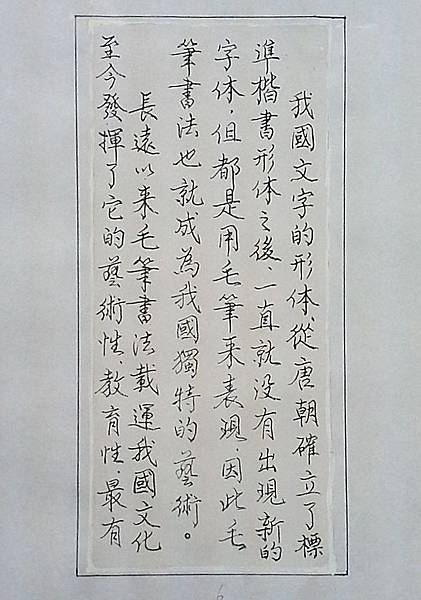 我國文字的形体、從唐朝確立了標
準楷書形体之後、一直就没有出現新的
字体、但都是用毛筆来表現、因此毛
筆書法也就成為我國獨特的藝術。
長遠以来毛筆書法載運我國文化
至今發揮了它的藝術性、教育性、最有
6